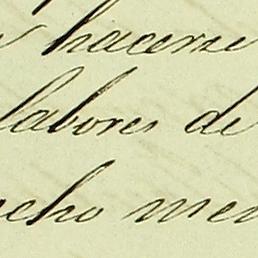 hacerse
labores de
echo men